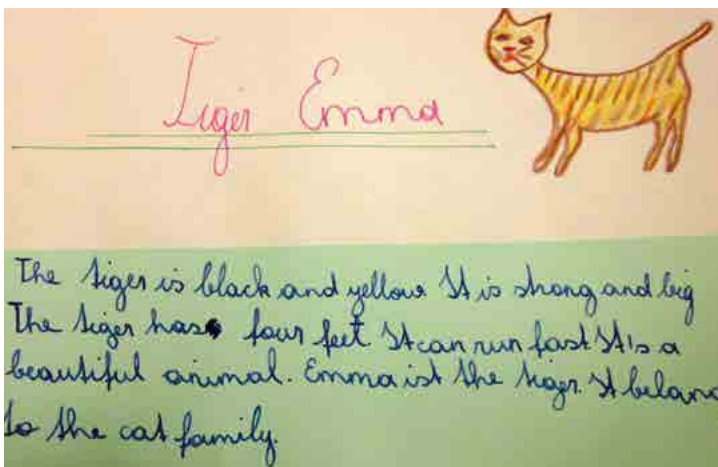 Tiger Emma
The tiger is black and yellow. It is strong and big
The tiger has four feet It can run fast It's a
beautiful animal. Emma ist the tiger. It belong
to the cat family.